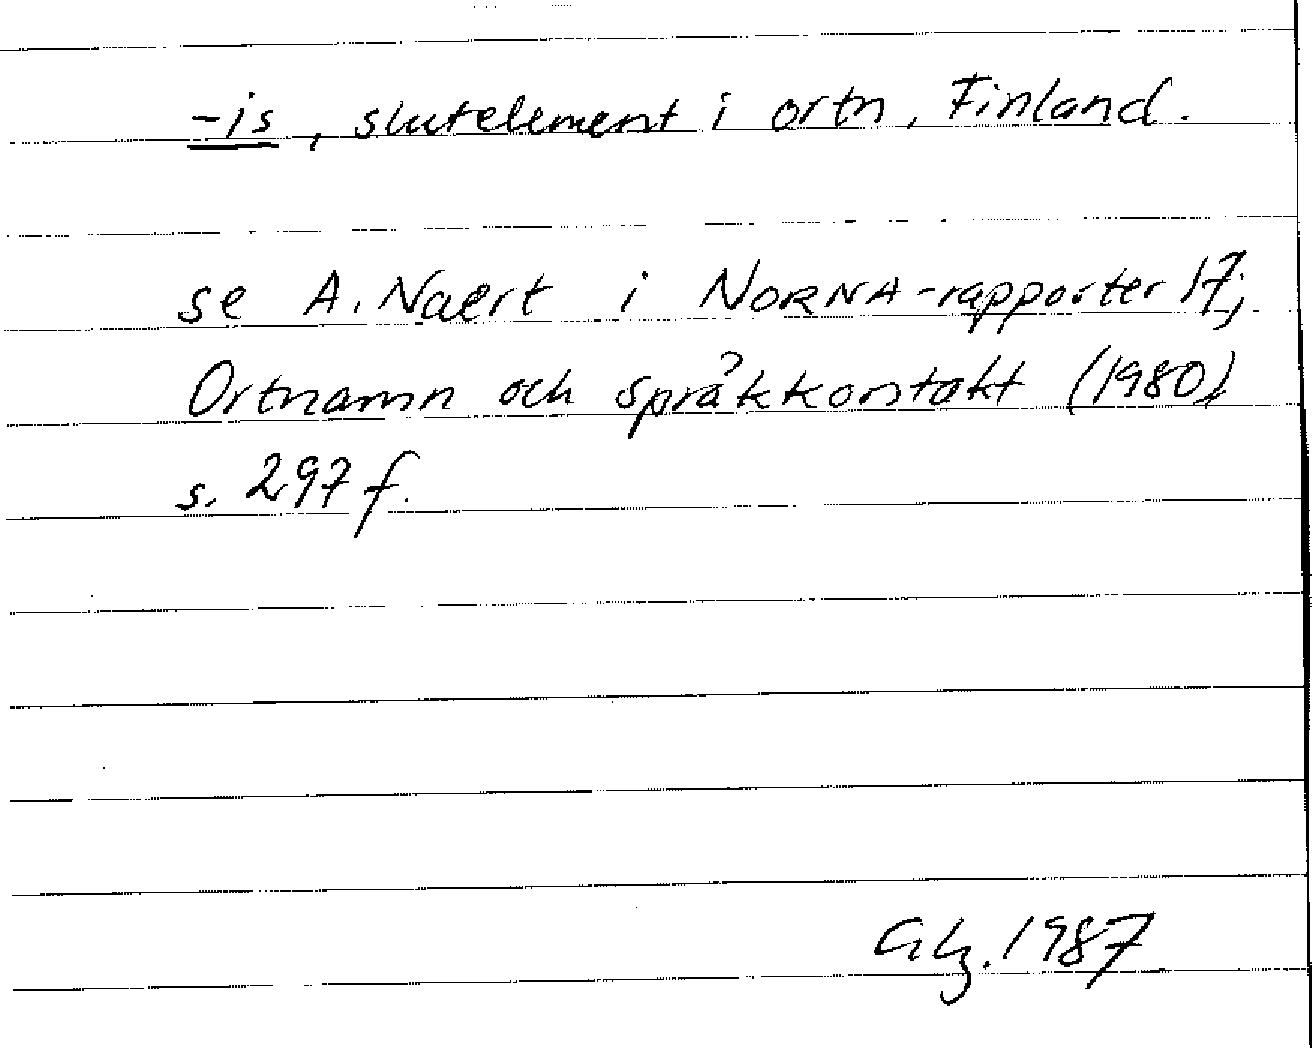 -is, slutelement i ortn, Finland.
se A. Naert i NORNA-rapporter 17;
Ortnamn och språkkontakt (1980)
s. 297 f.
1987